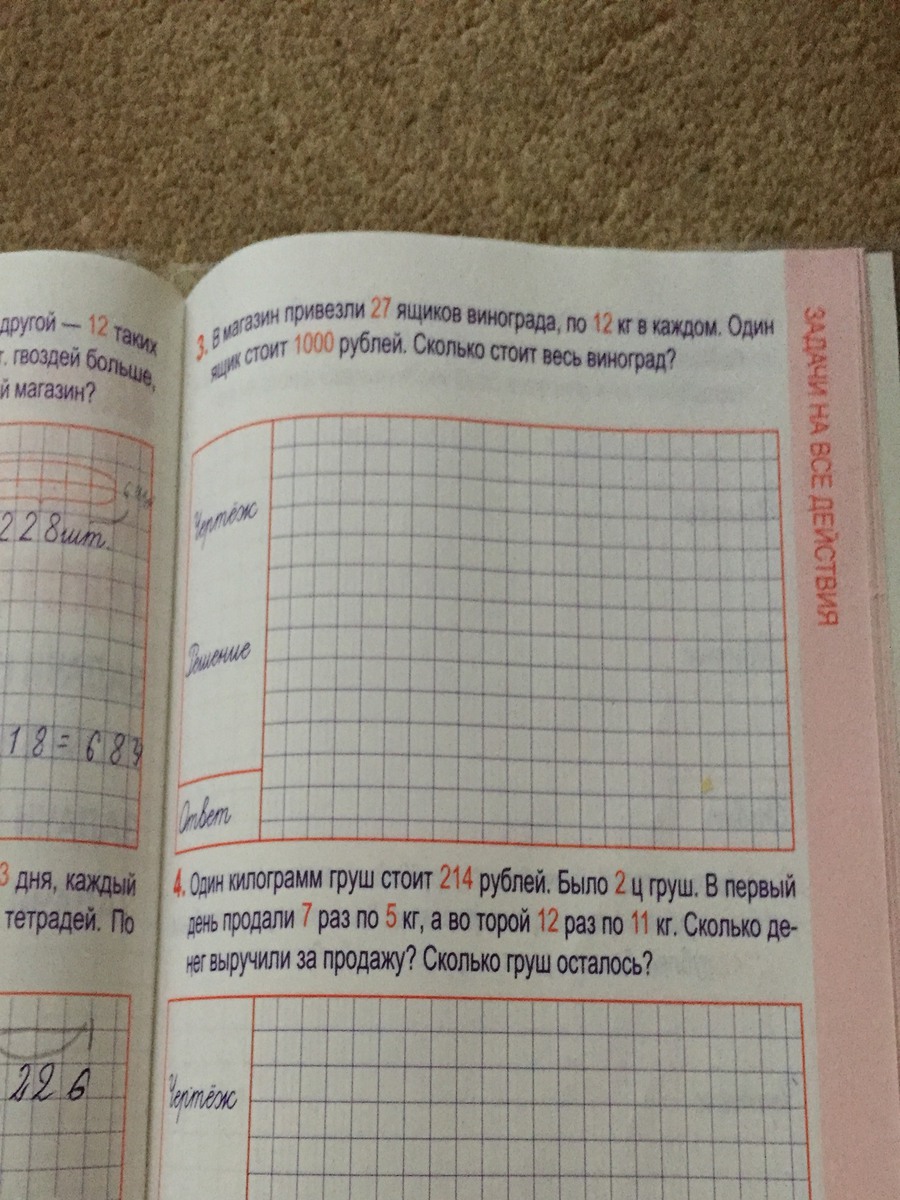 другой — 12 таких
т. гвоздей больше,
й магазин?
228шт.
18=684
3 дня, каждый
тетрадей. По
226
3. В магазин привезли 27 ящиков винограда, по 12 кг в каждом. Один
ящик стоит 1000 рублей. Сколько стоит весь виноград?
Чертёж
Решение
Ответ
4. Один килограмм груш стоит 214 рублей. Было 2 ц груш. В первый
день продали 7 раз по 5 кг, а во торой 12 раз по 11 кг. Сколько де-
нег выручили за продажу? Сколько груш осталось?
Чертёж
ЗАДАЧИ НА ВСЕ ДЕЙСТВИЯ